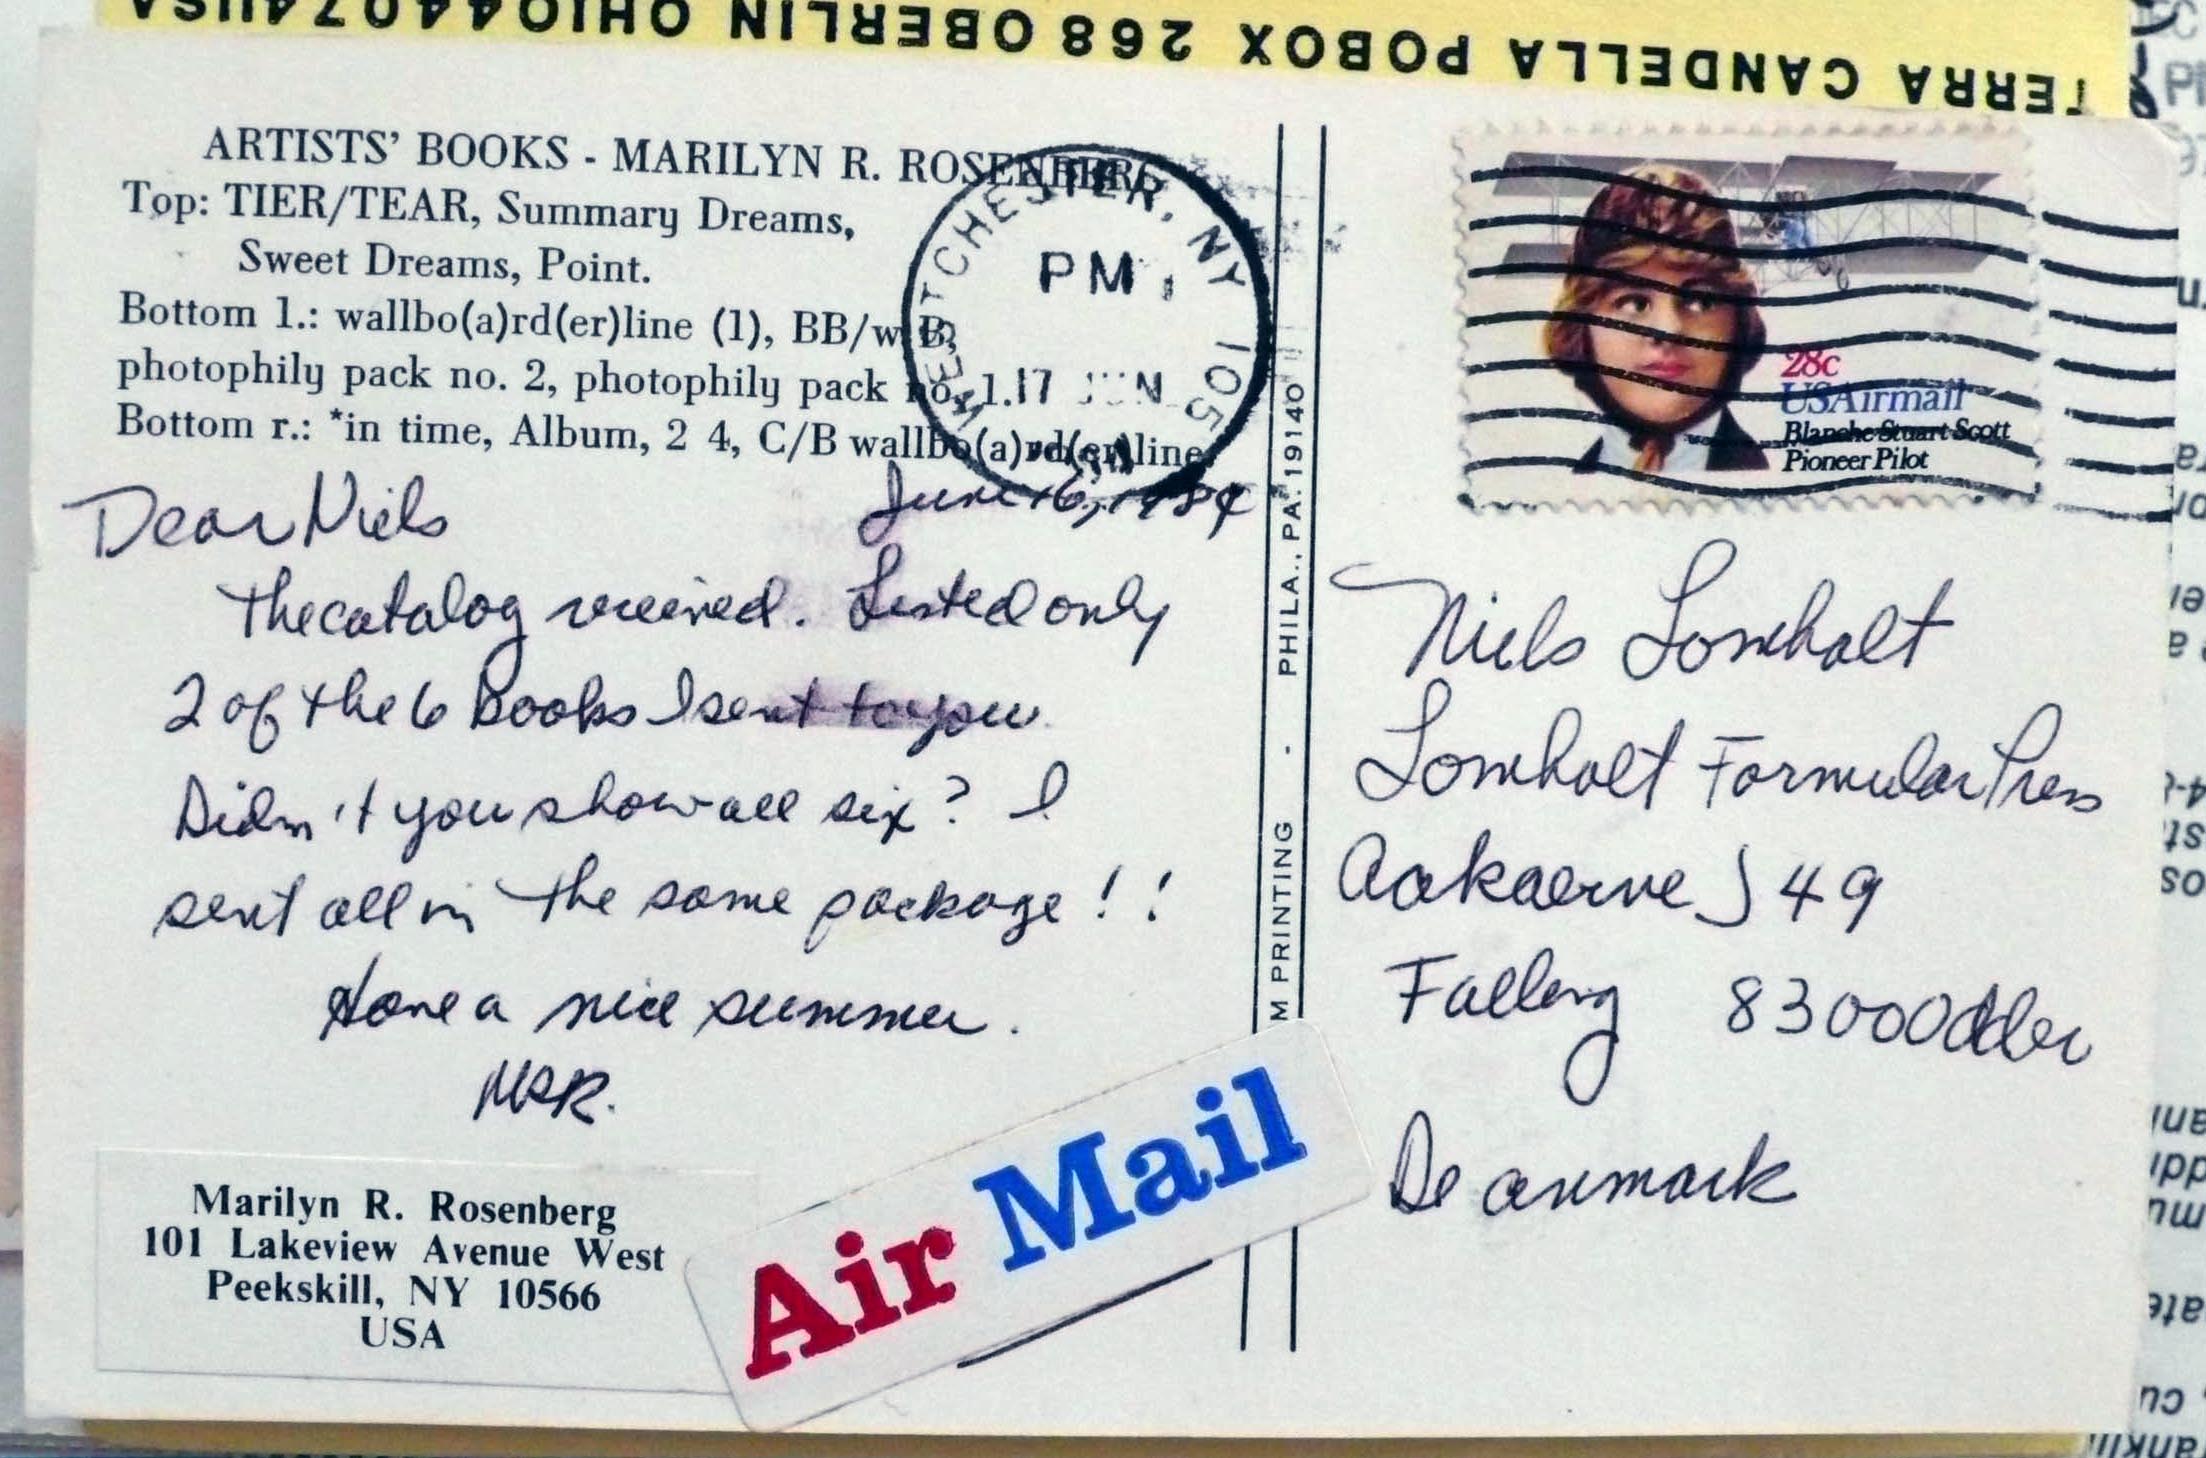 TERRA CANDELLA POBOX 268 OBERLIN OHIO44074USA
ARTISTS' BOOKS - MARILYN R. ROSENBERG
Top: TIER/TEAR, Summary Dreams,
Sweet Dreams, Point.
Bottom l.: wallbo(a)rd(er)line (1), BB/w B,
photophily pack no. 2, photophily pack no. 1.
Bottom r.: *in time, Album, 2 4, C/B wallbo(a)rd(er)line
WESTCHESTER, NY 105
PM
17 JUN
28c
USAirmail
Blanche Stuart Scott
Pioneer Pilot
June 16, 1984
Dear Niels
The catalog received. Listed only
2 of the 6 Books I sent to you
Didn't you show all six? I
sent all in the same package!!
Have a nice summer.
MRR.
Marilyn R. Rosenberg
101 Lakeview Avenue West
Peekskill, NY 10566
USA
Air Mail
M PRINTING - PHILA., PA. 19140
Niels Lomholt
Lomholt Formular Press
Aakaerve J 49
Falling 8300 Odder
Deanmark